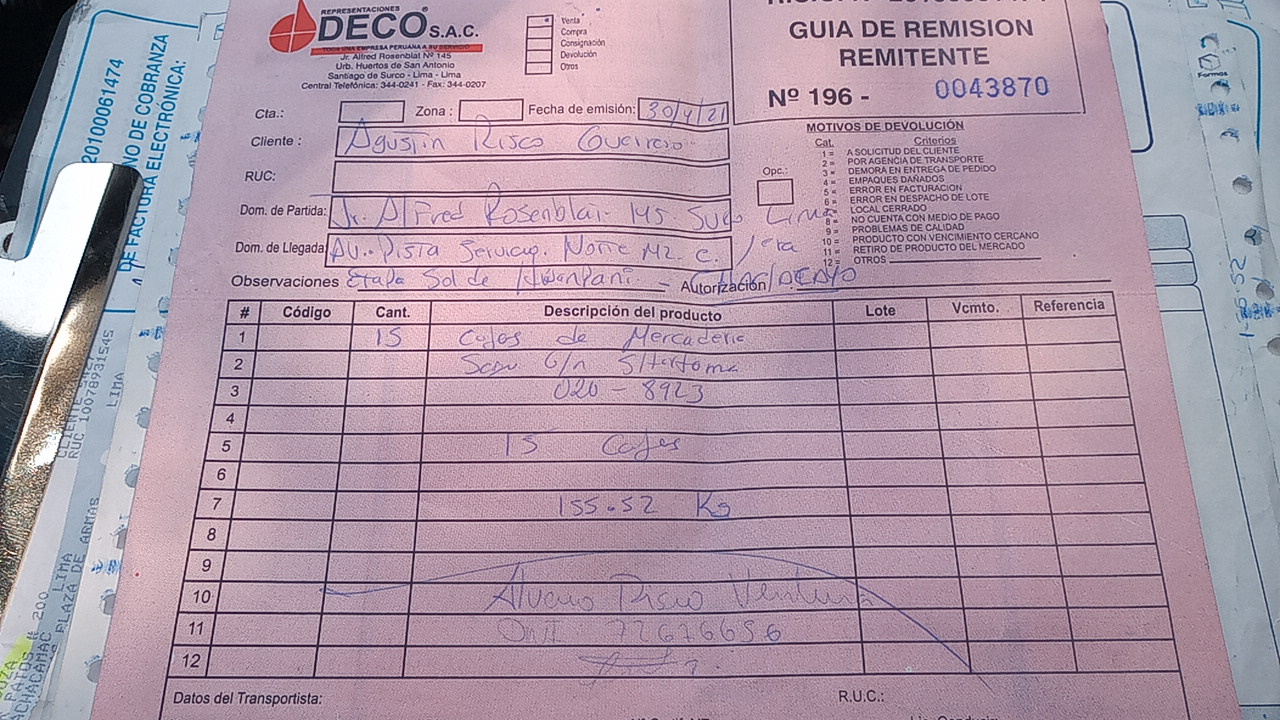 REPRESENTACIONES
DECO S.A.C.
TODA UNA EMPRESA PERUANA A SU SERVICIO
Jr. Alfred Rosenblat Nº 145
Urb. Huertos de San Antonio
Santiago de Surco - Lima - Lima
Central Telefónica: 344-0241 - Fax: 344-0207
Venta
Compra
Consignación
Devolución
Otros
GUIA DE REMISION
REMITENTE
Nº 196 - 0043870
Cta.: Zona : Fecha de emisión: 30/4/21
Cliente : Agustin Risco Guerrero
RUC:
Opc.:
Dom. de Partida: Jr. Alfred Rosenblat. 145. Surco Lima
Dom. de Llegada: Av. Pista Servicio. Norte Mz. C. 1era
Observaciones Etapa Sol de Huampani - Autorización CHACLACAYO
MOTIVOS DE DEVOLUCIÓN
Cat. Criterios
1 = A SOLICITUD DEL CLIENTE
2 = POR AGENCIA DE TRANSPORTE
3 = DEMORA EN ENTREGA DE PEDIDO
4 = EMPAQUES DAÑADOS
5 = ERROR EN FACTURACION
6 = ERROR EN DESPACHO DE LOTE
7 = LOCAL CERRADO
8 = NO CUENTA CON MEDIO DE PAGO
9 = PROBLEMAS DE CALIDAD
10 = PRODUCTO CON VENCIMIENTO CERCANO
11 = RETIRO DE PRODUCTO DEL MERCADO
12 = OTROS
# Código Cant. Descripción del producto Lote Vcmto. Referencia
1 15 Cajas de Mercaderia
2 Segun G/R
3 020 - 8923
4
5 15 Cajas
6
7 155.52 Kg
8
9
10 Alvaro Risco Ventura
11 DNI 72676656
12
Datos del Transportista: R.U.C.:
20100061474
DE FACTURA ELECTRÓNICA:
NO DE COBRANZA
RUC 10078931545
LIMA
PLAZA DE ARMAS
LIMA
PATOS N 200
Formas